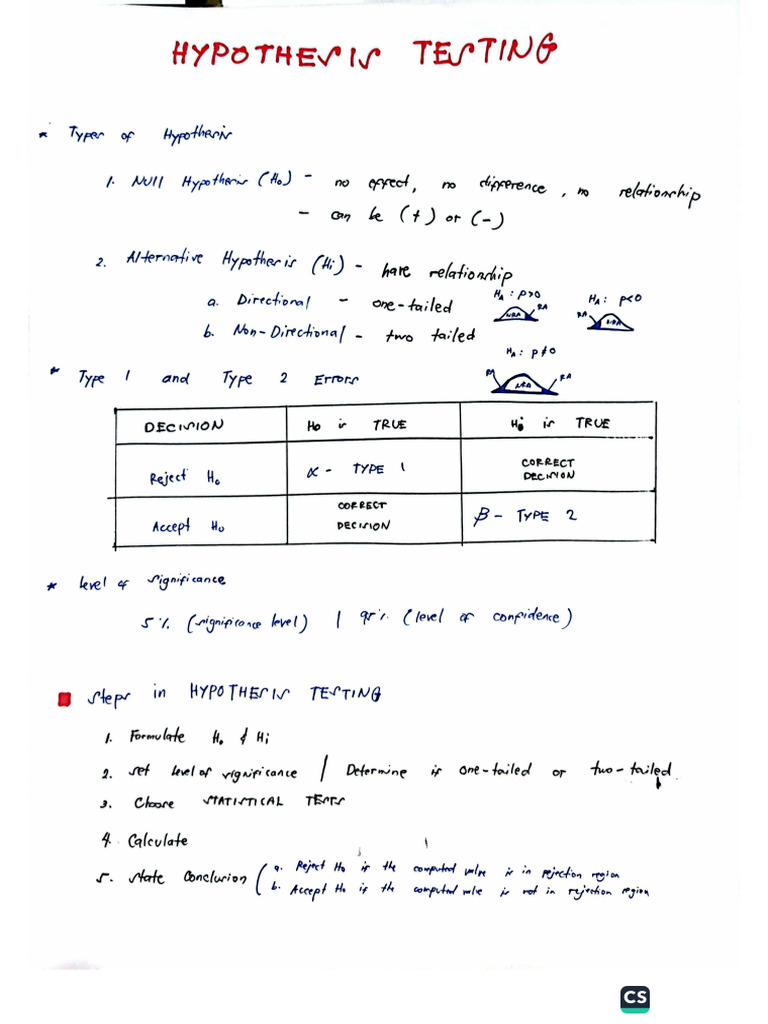 HYPOTHESIS TESTING
* Types of Hypothesis
1. Null Hypothesis (Ho) - no effect, no difference, no relationship
- can be (+) or (-)
2. Alternative Hypothesis (Hi) - have relationship
a. Directional - one-tailed
HA : p>0
RA
NRA
HA : p<0
RA
NRA
b. Non-Directional - two tailed
HA : p≠0
RA
NRA
RA
* Type 1 and Type 2 Errors
DECISION Ho is TRUE Hi is TRUE
Reject Ho α - TYPE 1 CORRECT DECISION
Accept Ho CORRECT DECISION β - TYPE 2
* level of significance
5% (significance level) | 95% (level of confidence)
Steps in HYPOTHESIS TESTING
1. Formulate Ho & Hi
2. set level of significance / Determine if one-tailed or two-tailed
3. Choose STATISTICAL TESTS
4. Calculate
5. state Conclusion ( a. Reject Ho if the computed value is in rejection region
b. Accept Ho if the computed value is not in rejection region
CS